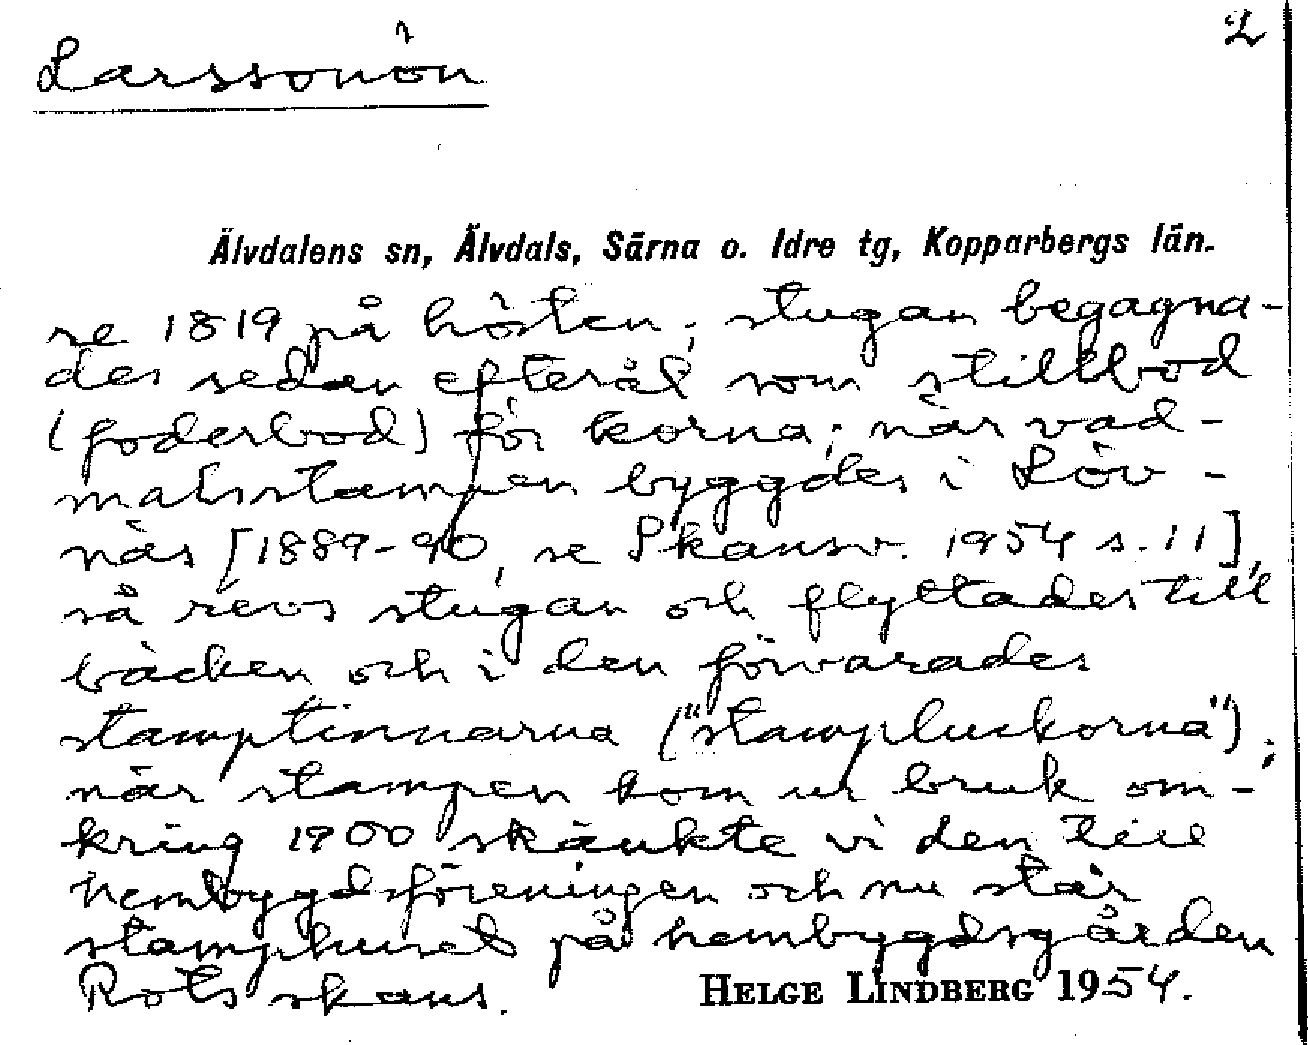 Larssonön
2
Älvdalens sn, Älvdals, Särna o. Idre tg, Kopparbergs län.
re 1819 på hösten; stugan begagna-
des sedan efteråt som stillbod
(foderbod) för korna; när vad-
malsstampen byggdes i Löv-
näs [1889-90, se Skansv. 1954 s. 11],
så revs stugan och flyttades till
bäcken och i den förvarades
stamptinnarna ("stampluckorna");
när stampen kom ur bruk om-
kring 1900 skänkte vi den till
hembygdsföreningen och nu står
stamphuset på hembygdsgården
Rots skans.
HELGE LINDBERG 1954.